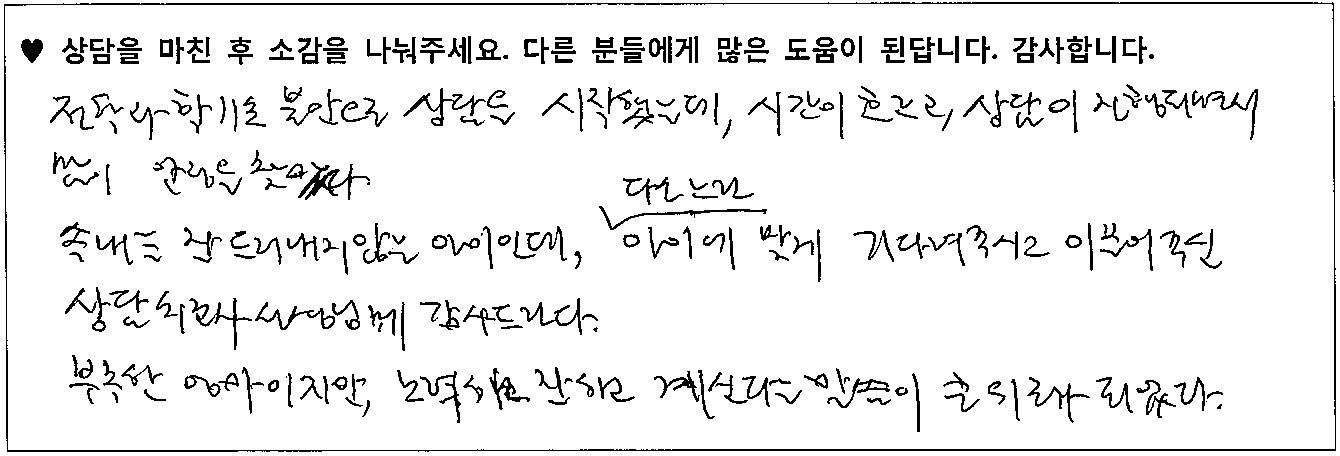 ♥ 상담을 마친 후 소감을 나눠주세요. 다른 분들에게 많은 도움이 된답니다. 감사합니다.
전학과 학기초 불안으로 상담을 시작했는데, 시간이 흐르고, 상담이 진행되면서
많이 안정을 찾았다.
다소 느린
속내를 잘 드러내지않는 아이인데, 아이에 맞게 기다려주시고 이끌어주신
상담치료사 선생님께 감사드린다.
부족한 엄마이지만, 노력하고 잘하고 계신다는 말씀이 큰 위로가 되었다.